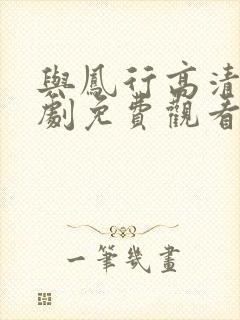 與鳳行高清
劇免費觀看
一筆幾畫